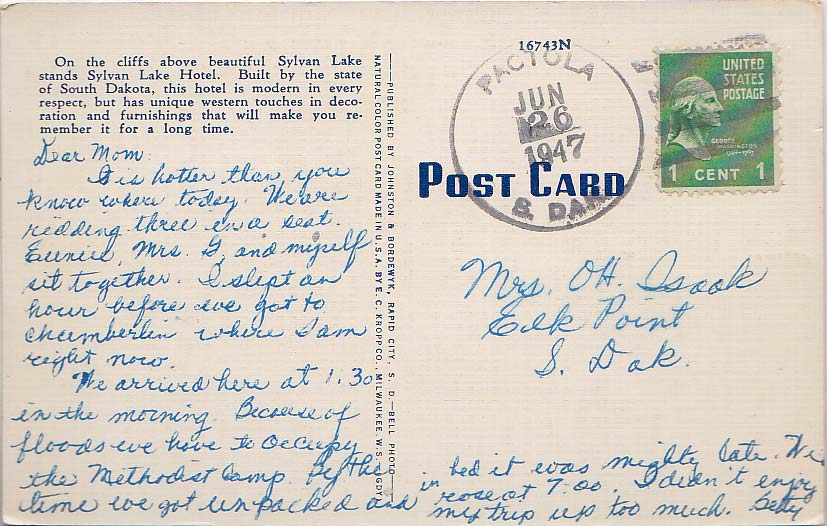 On the cliffs above beautiful Sylvan Lake
stands Sylvan Lake Hotel. Built by the state
of South Dakota, this hotel is modern in every
respect, but has unique western touches in deco-
ration and furnishings that will make you re-
member it for a long time.
Dear Mom:
It is hotter than, you
know where today. We are
ridding three in a seat.
Eunice, Mrs. G, and myself
sit together. I slept an
hour before we got to
Chamberlin where I am
right now.
We arrived here at 1:30
in the morning. Because of
floods we have to occupy
the Methodist Camp. By the
time we got unpacked and
in bed it was mighty late. We
rose at 7:00. I didn't enjoy
my trip up too much. Betty
PUBLISHED BY JOHNSTON & BORDEWYK, RAPID CITY, S. D.—BELL PHOTO
NATURAL COLOR POST CARD MADE IN U.S.A. BY E. C. KROPP CO., MILWAUKEE, WIS.
16743N
PACTOLA
JUN
26
1947
S. DAK.
UNITED
STATES
POSTAGE
GEORGE
WASHINGTON
1 CENT 1
POST CARD
Mrs. O.H. Isaak
Elk Point
S. Dak.